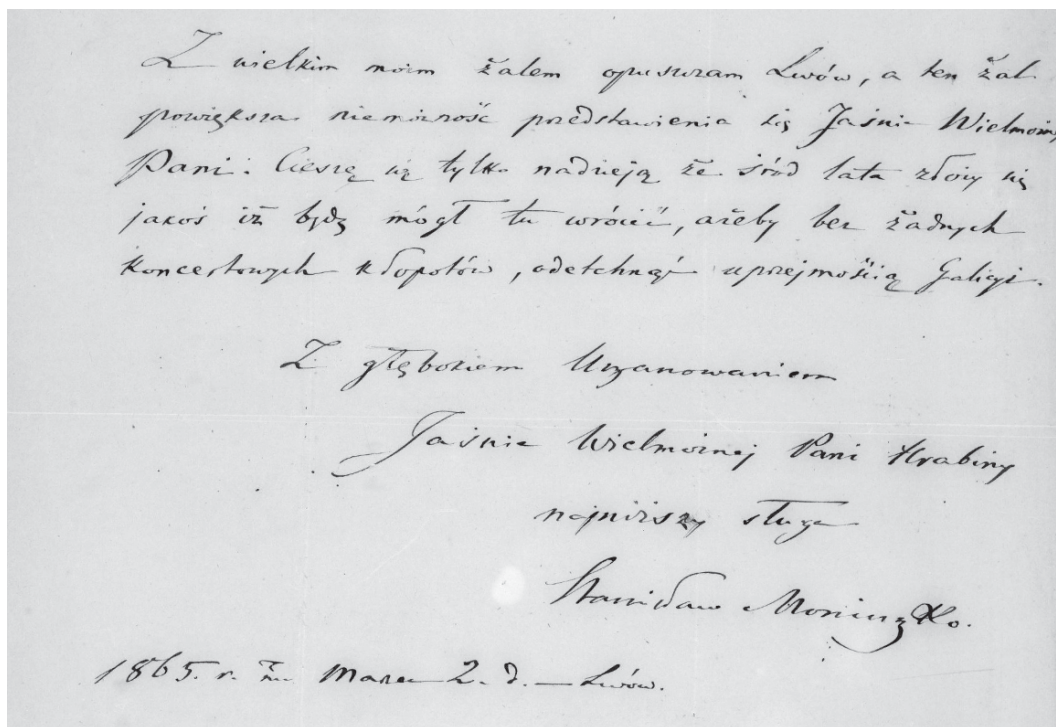 Z wielkim moim żalem opuszczam Lwów, a ten żal
powiększa niemożność przedstawienia się Jaśnie Wielmożnéj
Pani. Cieszę się tylko nadzieją że śród lata złoży się
jakoś iż będę mógł tu wrócić, ażeby bez żadnych
koncertowych kłopotów, odetchnąć uprzejmością Galicyi.
Z głębokiem Uszanowaniem
Jaśnie Wielmożnej Pani Hrabiny
najniższy sługa
Stanisław Moniuszko.
1865. r. m. Marca 2. d. — Lwów.